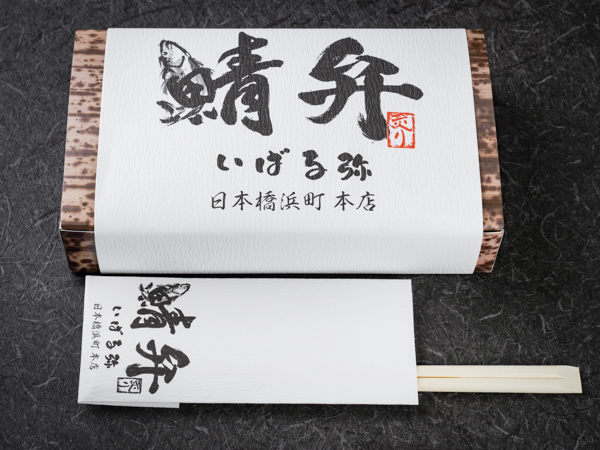 鯖弁
炙り
いばる弥
日本橋浜町 本店
鯖弁
炙り
いばる弥
日本橋浜町 本店